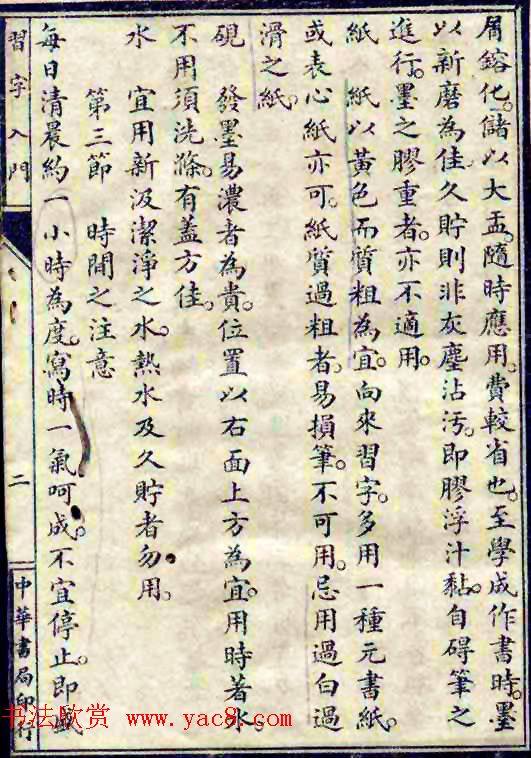 屑鎔化。儲以大盂。隨時應用。費較省也。至學成作書時。墨
以新磨為佳。久貯則非灰塵沾汚。即膠浮汁黏。自碍筆之
進行。墨之膠重者。亦不適用。
紙　紙以黃色而質粗為宜。向來習字。多用一種元書紙。
或表心紙亦可。紙質過粗者。易損筆。不可用。忌用過白過
滑之紙。
硯　發墨易濃者為貴。位置以右面上方為宜。用時著水。
不用須洗滌。有蓋方佳。
水　宜用新汲潔淨之水。熱水及久貯者勿用。
第三節　時間之注意
每日清晨約一小時為度。寫時一氣呵成。不宜停止。即盛
習字入門
二
中華書局印行
书法欣赏 www.yac8.com